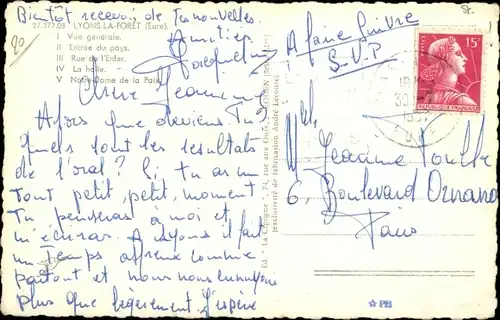 Bientôt recevoir de tes nouvelles
27.377.08 LYONS-LA-FORÊT (Eure)
I Vue générale.
II Entrée du pays.
III Rue de l'Enfer.
IV La halle.
V Notre-Dame de la Paix.
20
Amitiés
Jacqueline
Chère Jeannine
Alors que deviens-Tu?
Quels sont les résultats
de l'oral? Si tu as un
tout petit, petit, moment
Tu penseras à moi et
m'écriras. A Lyons il fait
un Temps affreux comme
partout et nous nous ennuyons
plus que légèrement J'espère
Ed. "La Cigogne", 74, rue aux Ours,
(exclusivité de fabrication André Leconte)
A faire Suivre
S.V.P
15F
REPUBLIQUE FRANÇAISE
Mlle Jeannine
6, Boulevard Ornano
Paris
PB